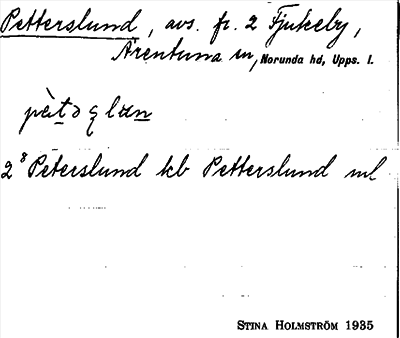 Petterslund, avs. fr. 2 Fjukeby,
Ärentuna sn, Norunda hd, Upps. l.
2 8 Peterslund kb Petterslund ml
STINA HOLMSTRÖM 1935